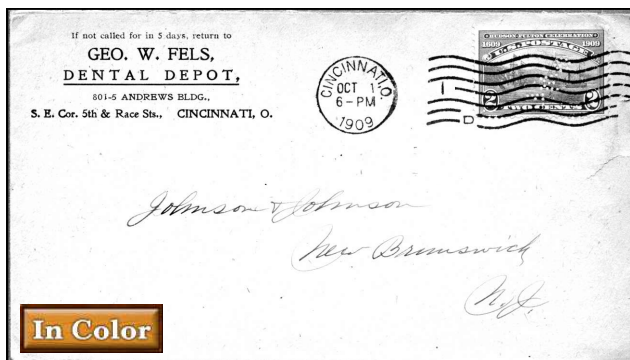 If not called for in 5 days, return to
GEO. W. FELS,
DENTAL DEPOT,
801-5 ANDREWS BLDG.,
S. E. Cor. 5th & Race Sts., CINCINNATI, O.
CINCINNATI, O.
OCT 1
6-PM
1909
1
D
HUDSON-FULTON CELEBRATION
1609 1909
U.S. POSTAGE
2 TWO CENTS 2
Johnson & Johnson
New Brunswick
N.J.
In Color